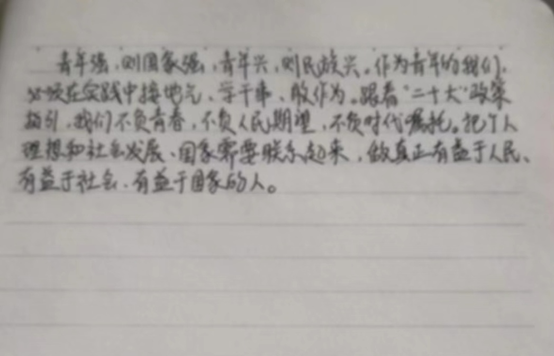 青年强，则国家强，青年兴，则民族兴。作为青年的我们，
必须在实践中接地气、学干事、敢作为。跟着“二十大”政策
指引，我们不负青春，不负人民期望，不负时代嘱托。把个人
理想和社会发展、国家需要联系起来，做真正有益于人民、
有益于社会、有益于国家的人。